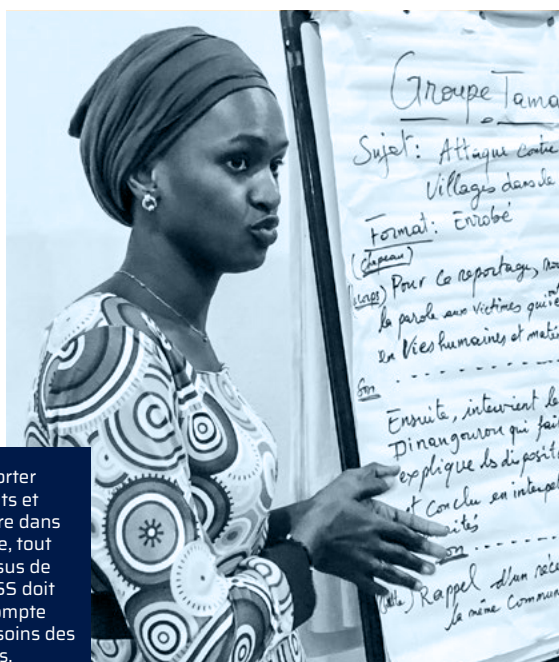 Groupe Tama
Sujet: Attaque contre
Villages dans le
Format: Enrobé
(chapeau)
(corps) Pour ce reportage, nou
la parole aux victimes qui
en Vies humaines et maté
Son - - - - - - - - - -
Ensuite, intervient le
Dinangourou qui fait
explique les disposit
et conclu en interpel
ités
on - - - - - - - - - -
Rappel d'un réce
la même Commun
orter
ts et
re dans
e, tout
sus de
SS doit
ompte
soins des
s.